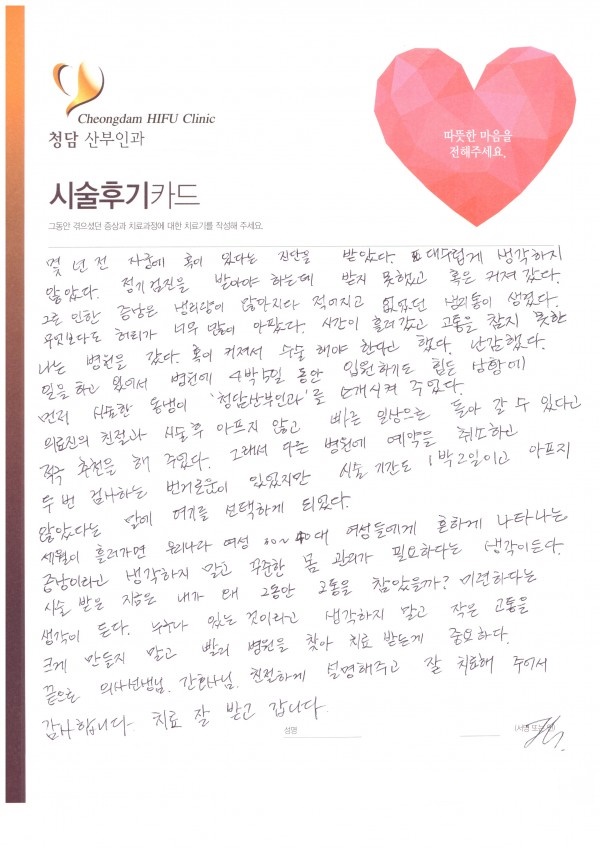 Cheongdam HIFU Clinic
청담 산부인과
따뜻한 마음을
전해주세요.
시술후기카드
그동안 겪으셨던 증상과 치료과정에 대한 치료기를 작성해 주세요.
몇 년 전 자궁에 혹이 있다는 진단을 받았다. 대수롭게 생각하지
않았다. 정기검진을 받아야 하는데 받지 못했고 혹은 커져 갔다.
그로 인한 증남은 냉리량이 많아지다 적어지고 없었던 냉리통이 생겼다.
무엇보다도 허리가 너무 많이 아팠다. 시간이 흘러갔고 고통을 참지 못한
나는 병원을 갔다. 혹이 커져서 수술 해야 한다고 했다. 난감했다.
일을 하고 있어서 병원에 4박5일 동안 입원하기도 힘든 상황에
먼저 시술한 동생이 '청담산부인과'를 소개시켜 주었다.
의료진의 친절과 시술후 아프지 않고 빠른 일상으로 돌아 갈 수 있다고
적극 추천을 해 주었다. 그래서 다른 병원에 예약을 취소하고
두 번 검사하는 번거로운이 있었지만 시술 기간도 1박2일이고 아프지
않았다는 말에 여기를 선택하게 되었다.
세월이 흘러가면 우리나라 여성 30~40대 여성들에게 흔하게 나타나는
증남이라고 생각하지 말고 꾸준한 몸 관리가 필요하다는 생각이든다.
시술 받은 지금은 내가 왜 그동안 고통을 참았을까? 미련하다는
생각이 든다. 누구나 있는 것이라고 생각하지 말고 작은 고통을
크게 만들지 말고 빨리 병원을 찾아 치료 받는게 중요하다.
끝으로 의사선생님, 간호사님, 친절하게 설명해주고 잘 치료해 주어서
감사합니다. 치료 잘 받고 갑니다.
성명 (서명 또는 인)